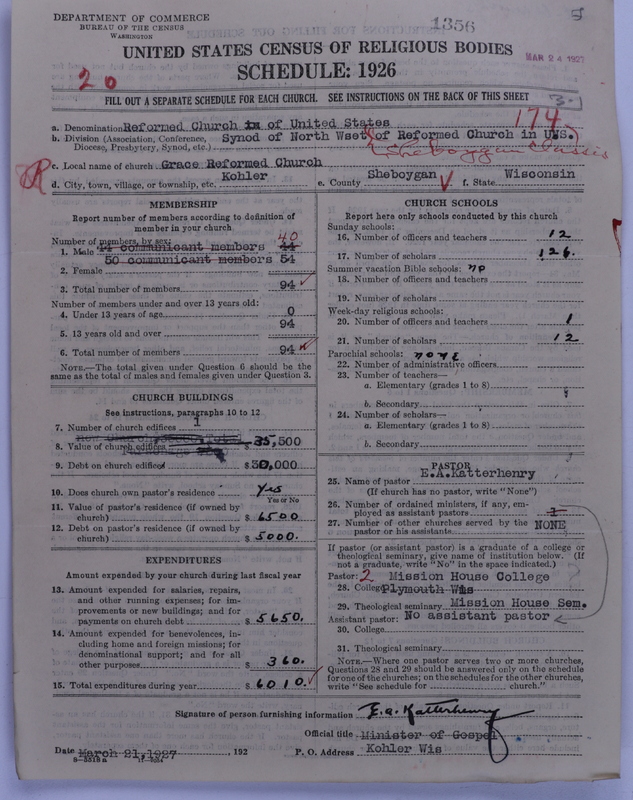 DEPARTMENT OF COMMERCE
BUREAU OF THE CENSUS
WASHINGTON
1356
UNITED STATES CENSUS OF RELIGIOUS BODIES
MAR 24 1927
SCHEDULE: 1926
20
FILL OUT A SEPARATE SCHEDULE FOR EACH CHURCH. SEE INSTRUCTIONS ON THE BACK OF THIS SHEET
3
174
a. Denomination Reformed Church in of United States
b. Division (Association, Conference, Diocese, Presbytery, Synod, etc.) Synod of North West of Reformed Church in U.S.
Sheboygan Classis
c. Local name of church Grace Reformed Church
d. City, town, village, or township, etc. Kohler e. County Sheboygan f. State Wisconsin
MEMBERSHIP
Report number of members according to definition of member in your church
Number of members, by sex:
1. Male 44 communicant members 44 40
2. Female 50 communicant members 54
3. Total number of members 94
Number of members under and over 13 years old:
4. Under 13 years of age 0
5. 13 years old and over 94
6. Total number of members 94
NOTE.—The total given under Question 6 should be the same as the total of males and females given under Question 3.
CHURCH BUILDINGS
See instructions, paragraphs 10 to 12
7. Number of church edifices 1
8. Value of church edifices $35,500
9. Debt on church edifices $30,000
10. Does church own pastor's residence Yes
Yes or No
11. Value of pastor's residence (if owned by church) $6500
12. Debt on pastor's residence (if owned by church) $5000.
EXPENDITURES
Amount expended by your church during last fiscal year
13. Amount expended for salaries, repairs, and other running expenses; for improvements or new buildings; and for payments on church debt $5650.
14. Amount expended for benevolences, including home and foreign missions; for denominational support; and for all other purposes $360.
15. Total expenditures during year $6010.
CHURCH SCHOOLS
Report here only schools conducted by this church
Sunday schools:
16. Number of officers and teachers 12
17. Number of scholars 126.
Summer vacation Bible schools: no
18. Number of officers and teachers
19. Number of scholars
Week-day religious schools:
20. Number of officers and teachers 1
21. Number of scholars 12
Parochial schools: none
22. Number of administrative officers
23. Number of teachers—
a. Elementary (grades 1 to 8)
b. Secondary
24. Number of scholars—
a. Elementary (grades 1 to 8)
b. Secondary
PASTOR
25. Name of pastor E.A.Katterhenry
(If church has no pastor, write "None")
26. Number of ordained ministers, if any, employed as assistant pastors
27. Number of other churches served by the pastor or his assistants NONE
If pastor (or assistant pastor) is a graduate of a college or theological seminary, give name of institution below. (If not a graduate, write "No" in the space indicated.)
Pastor: 2 Mission House College
28. College Plymouth Wis
29. Theological seminary Mission House Sem.
Assistant pastor: No assistant pastor
30. College
31. Theological seminary
NOTE.—Where one pastor serves two or more churches, Questions 28 and 29 should be answered only on the schedule for one of the churches; on the schedules for the other churches, write "See schedule for ........ church."
Signature of person furnishing information E.A. Katterhenry
Official title Minister of Gospel
Date March 21,1927 , 192 P. O. Address Kohler Wis